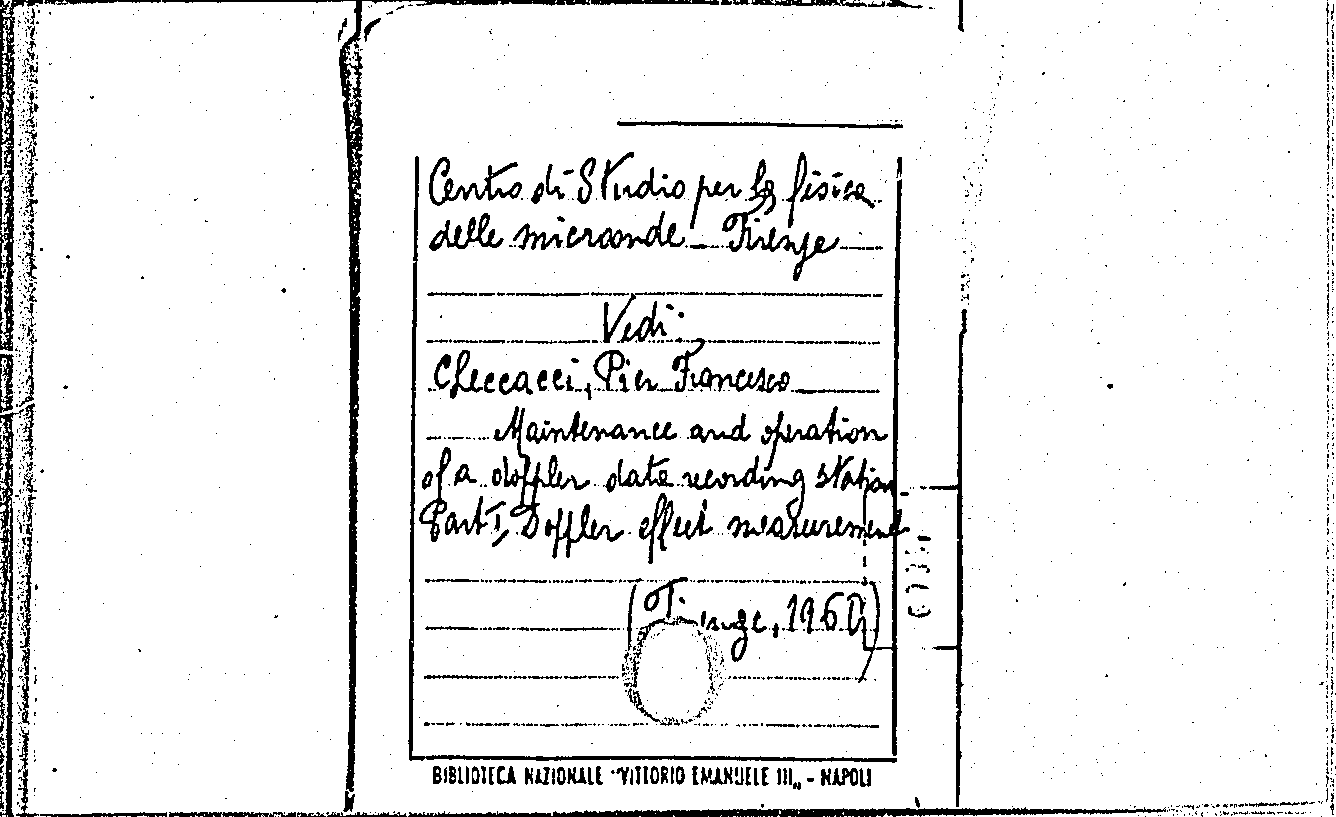 Centro di Studio per la fisica
delle microonde - Firenze
Vedi:
Checcacci, Pier Francesco
Maintenance and operation
of a doppler data recording station
Part I, Doppler effect measurement
(Firenze, 1960)
BIBLIOTECA NAZIONALE "VITTORIO EMANUELE III„ - NAPOLI